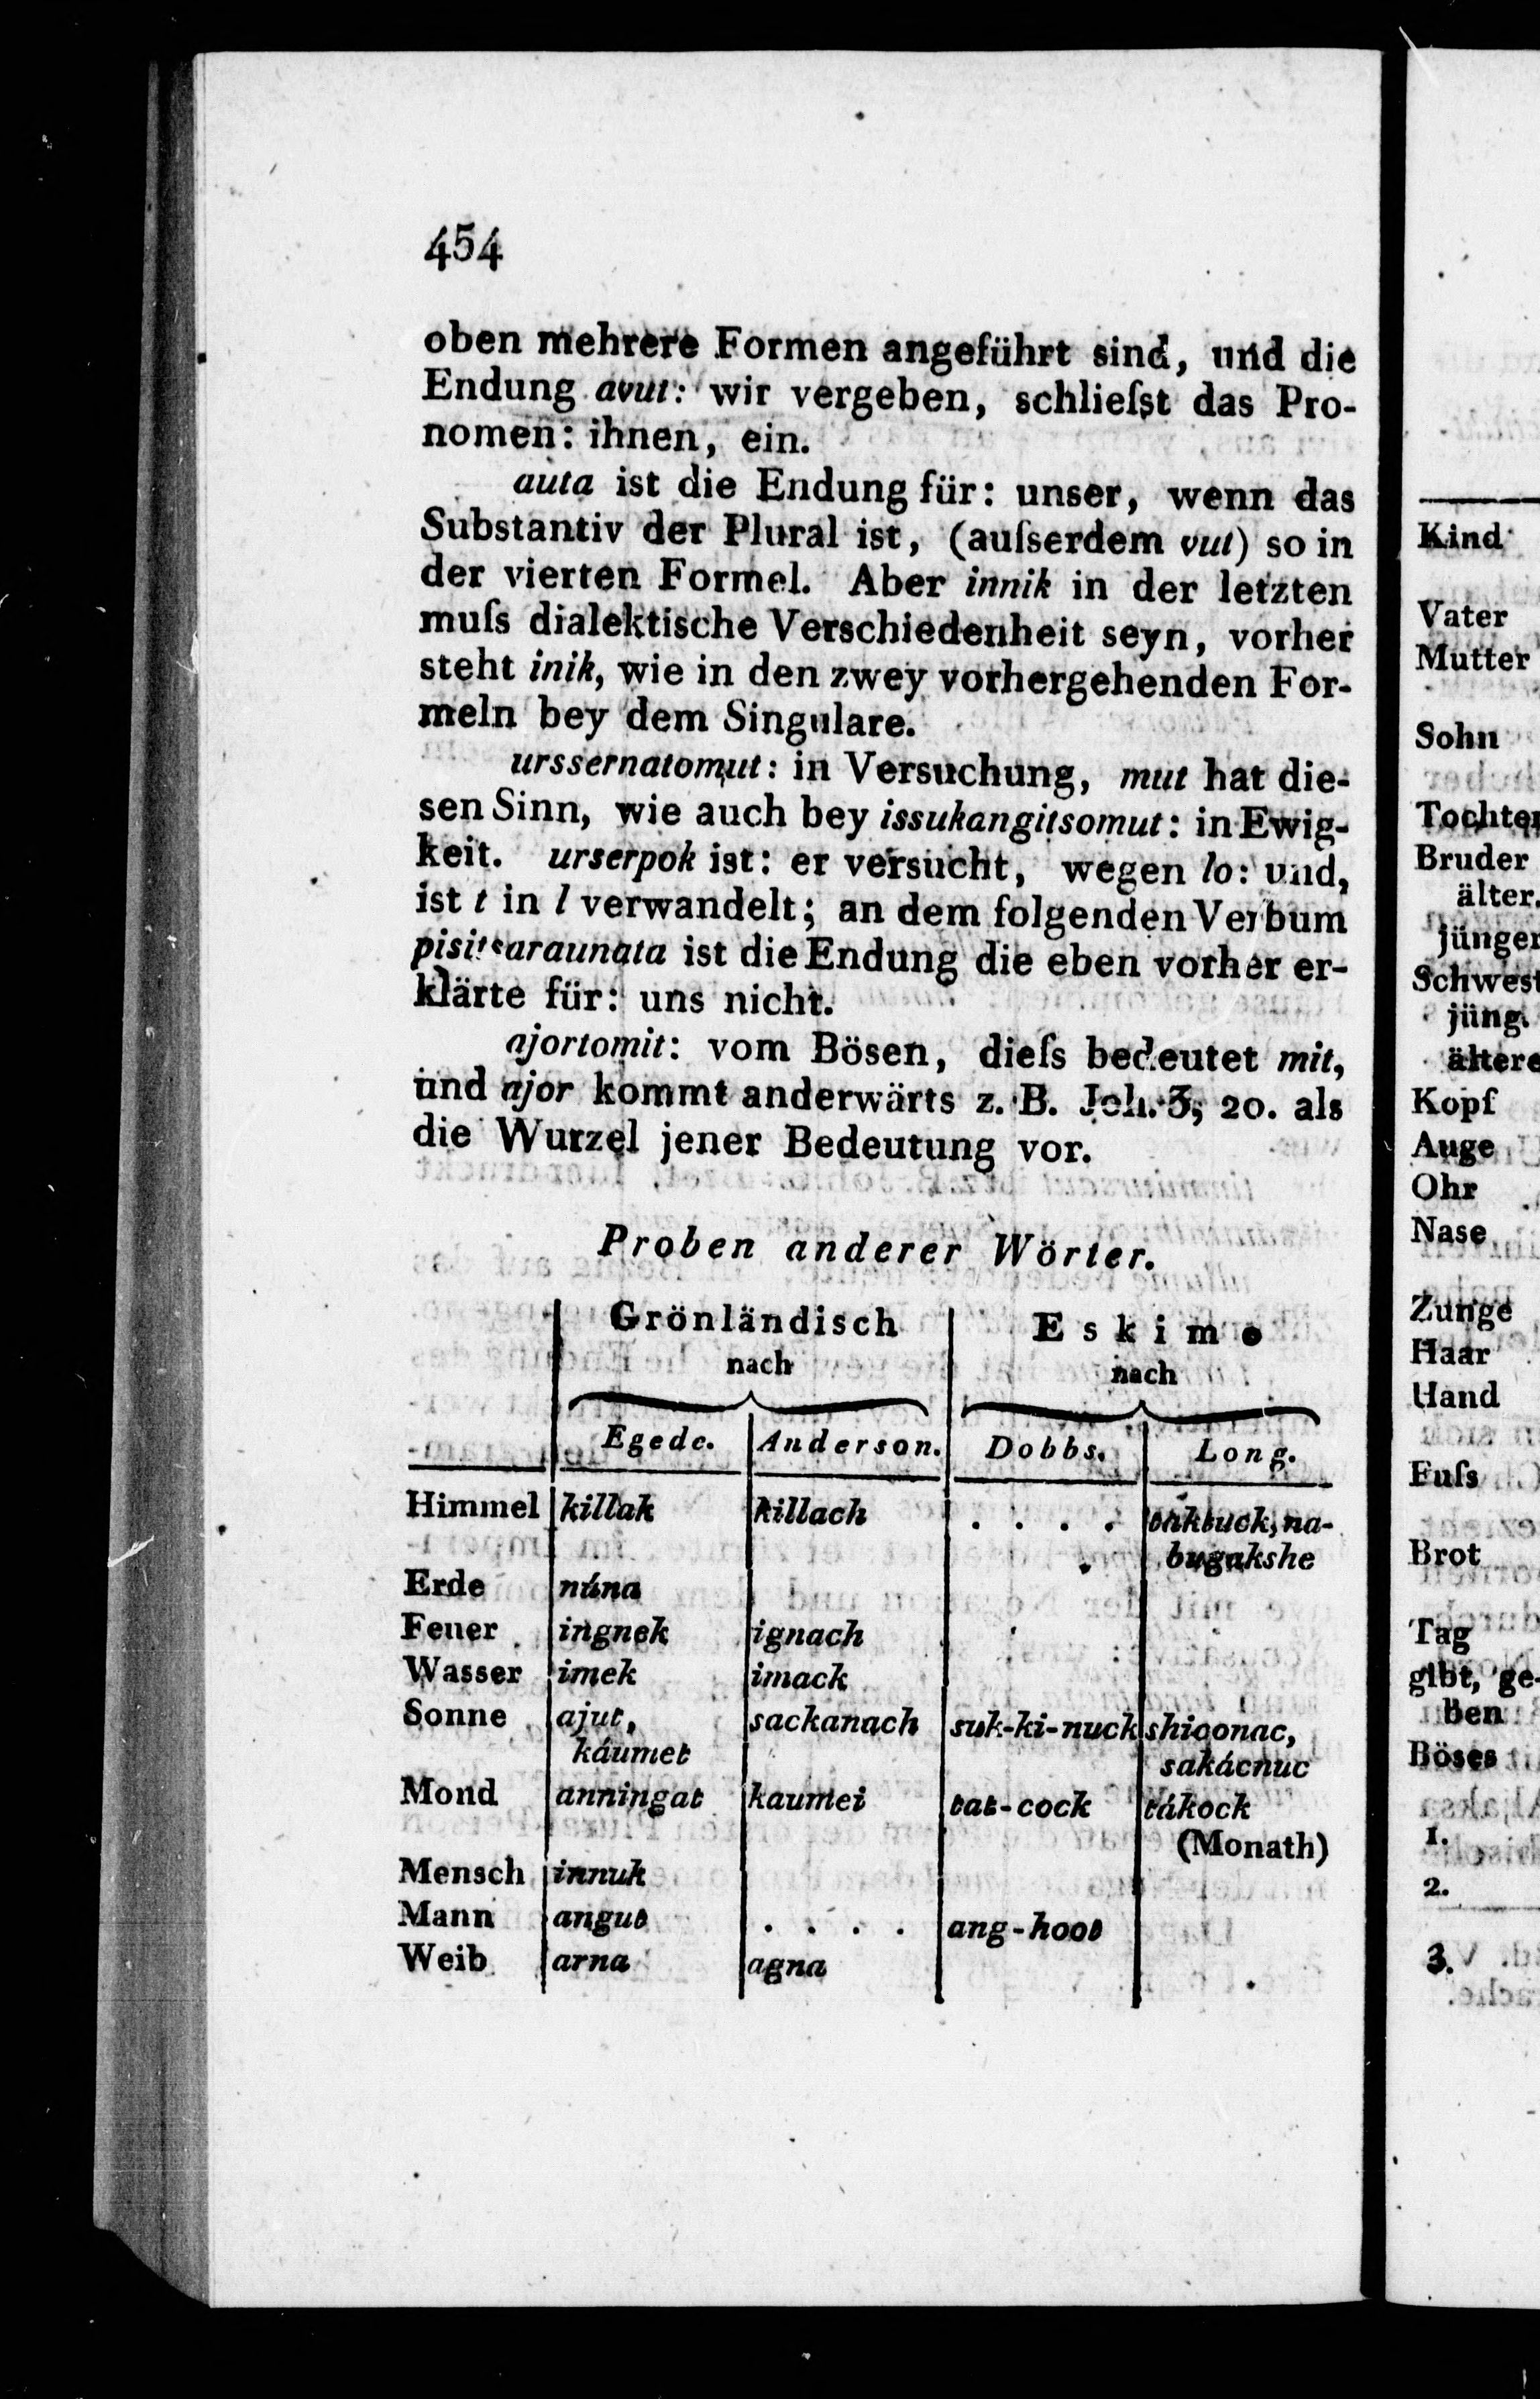 454
oben mehrere Formen angeführt sind, und die
Endung avut: wir vergeben, schlieſst das Pro-
nomen: ihnen, ein.
auta ist die Endung für: unser, wenn das
Substantiv der Plural ist, (auſserdem vut) so in
der vierten Formel. Aber innik in der letzten
muſs dialektische Verschiedenheit seyn, vorher
steht inik, wie in den zwey vorhergehenden For-
meln bey dem Singulare.
urssernatomut: in Versuchung, mut hat die-
sen Sinn, wie auch bey issukangitsomut: in Ewig-
keit. urserpok ist: er versucht, wegen lo: und,
ist t in l verwandelt; an dem folgenden Verbum
pisitsaraunata ist die Endung die eben vorher er-
klärte für: uns nicht.
ajortomit: vom Bösen, dieſs bedeutet mit,
und ajor kommt anderwärts z. B. Joh. 3, 20. als
die Wurzel jener Bedeutung vor.
Proben anderer Wörter.
Grönländisch Eskimo
nach nach
Egede. Anderson. Dobbs. Long.
Himmel killak killach . . . . taktuck, na-
bugakshe
Erde núna
Feuer ingnek ignach
Wasser imek imack
Sonne ajut, sackanach suk-ki-nuck shiconac,
káumet sakácnuc
Mond anningat kaumei tat-cock tákock
(Monath)
Mensch innuk
Mann angut . . . . ang-hoot
Weib arna agna
Kind
Vater
Mutter
Sohn
Tochter
Bruder
älter.
jünger
Schwest
jüng.
ältere
Kopf
Auge
Ohr
Nase
Zunge
Haar
Hand
Fuſs
Brot
Tag
gibt, ge-
ben
Böses
1.
2.
3.